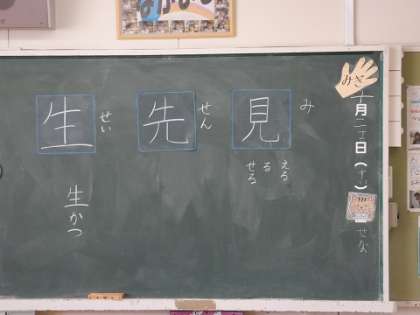 みぎ
月二十日(十)
み
見
える
る
せる
せん
先
せい
生
生かつ